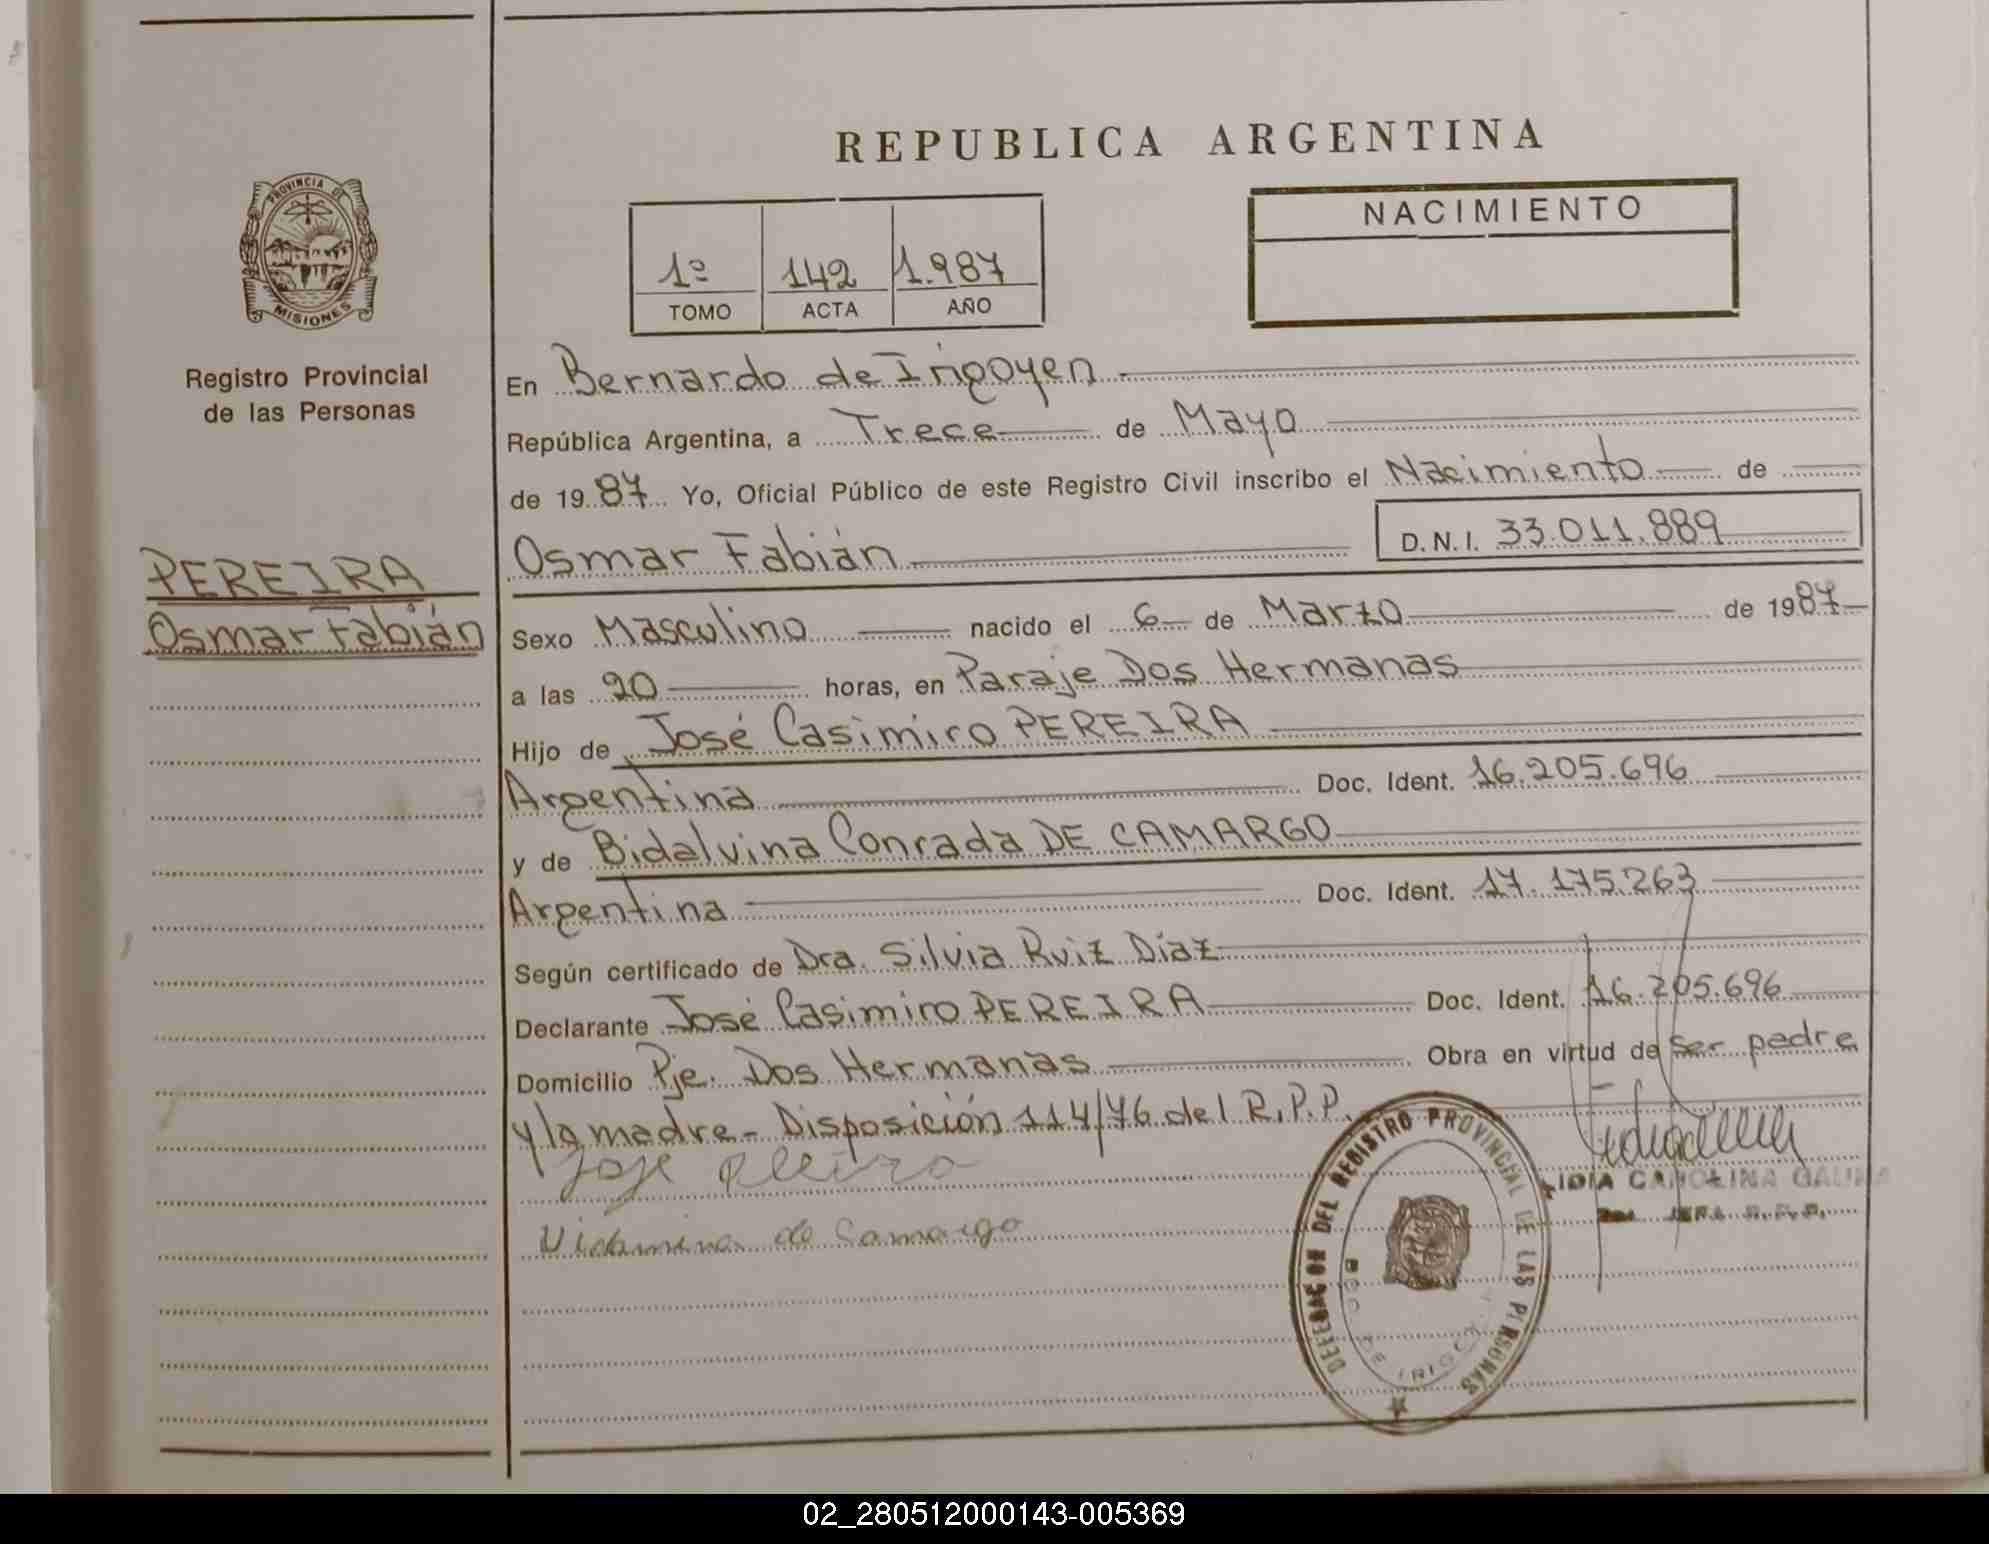 REPUBLICA ARGENTINA
PROVINCIA DE
MISIONES
Registro Provincial
de las Personas
1º 142 1.987
TOMO ACTA AÑO
NACIMIENTO
En Bernardo de Irigoyen
República Argentina, a Trece de Mayo
de 1987 Yo, Oficial Público de este Registro Civil inscribo el Nacimiento de
Osmar Fabián D.N.I. 33.011.889
PEREIRA
Osmar Fabián
Sexo Masculino nacido el 6 de Marzo de 1987
a las 20 horas, en Paraje Dos Hermanas
Hijo de José Casimiro PEREIRA
Argentina Doc. Ident. 16.205.696
y de Bidalvina Conrada DE CAMARGO
Argentina Doc. Ident. 17.175.263
Según certificado de Dra. Silvia Ruiz Díaz
Declarante José Casimiro PEREIRA Doc. Ident. 16.205.696
Domicilio Pje. Dos Hermanas Obra en virtud de ser padre
y la madre - Disposición 114/76 del R.P.P.
Jose
de Camargo
DELEGACION DEL REGISTRO PROVINCIAL DE LAS PERSONAS
BDO DE IRIGOYEN
LIDIA CAROLINA
JEFA R.P.P.
02_280512000143-005369